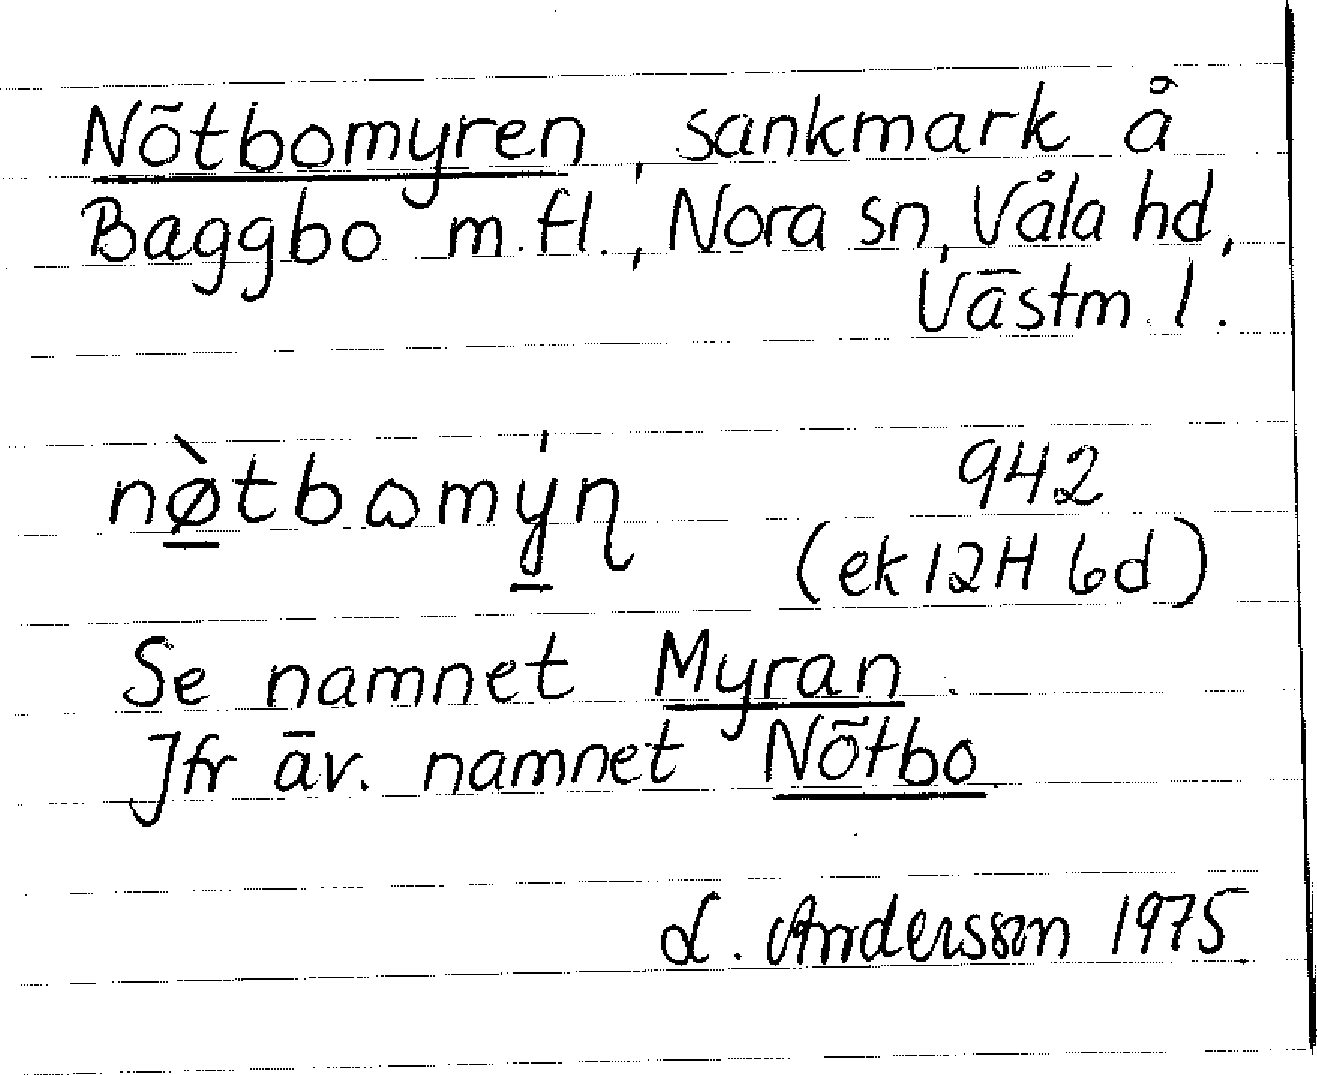 Nötbomyren, sankmark å
Baggbo m.fl., Nora sn, Våla hd,
Västm. l.
nø̀tbɷmýɳ 942
(ek 12H 6d)
Se namnet Myran.
Jfr äv. namnet Nötbo
L. Andersson 1975